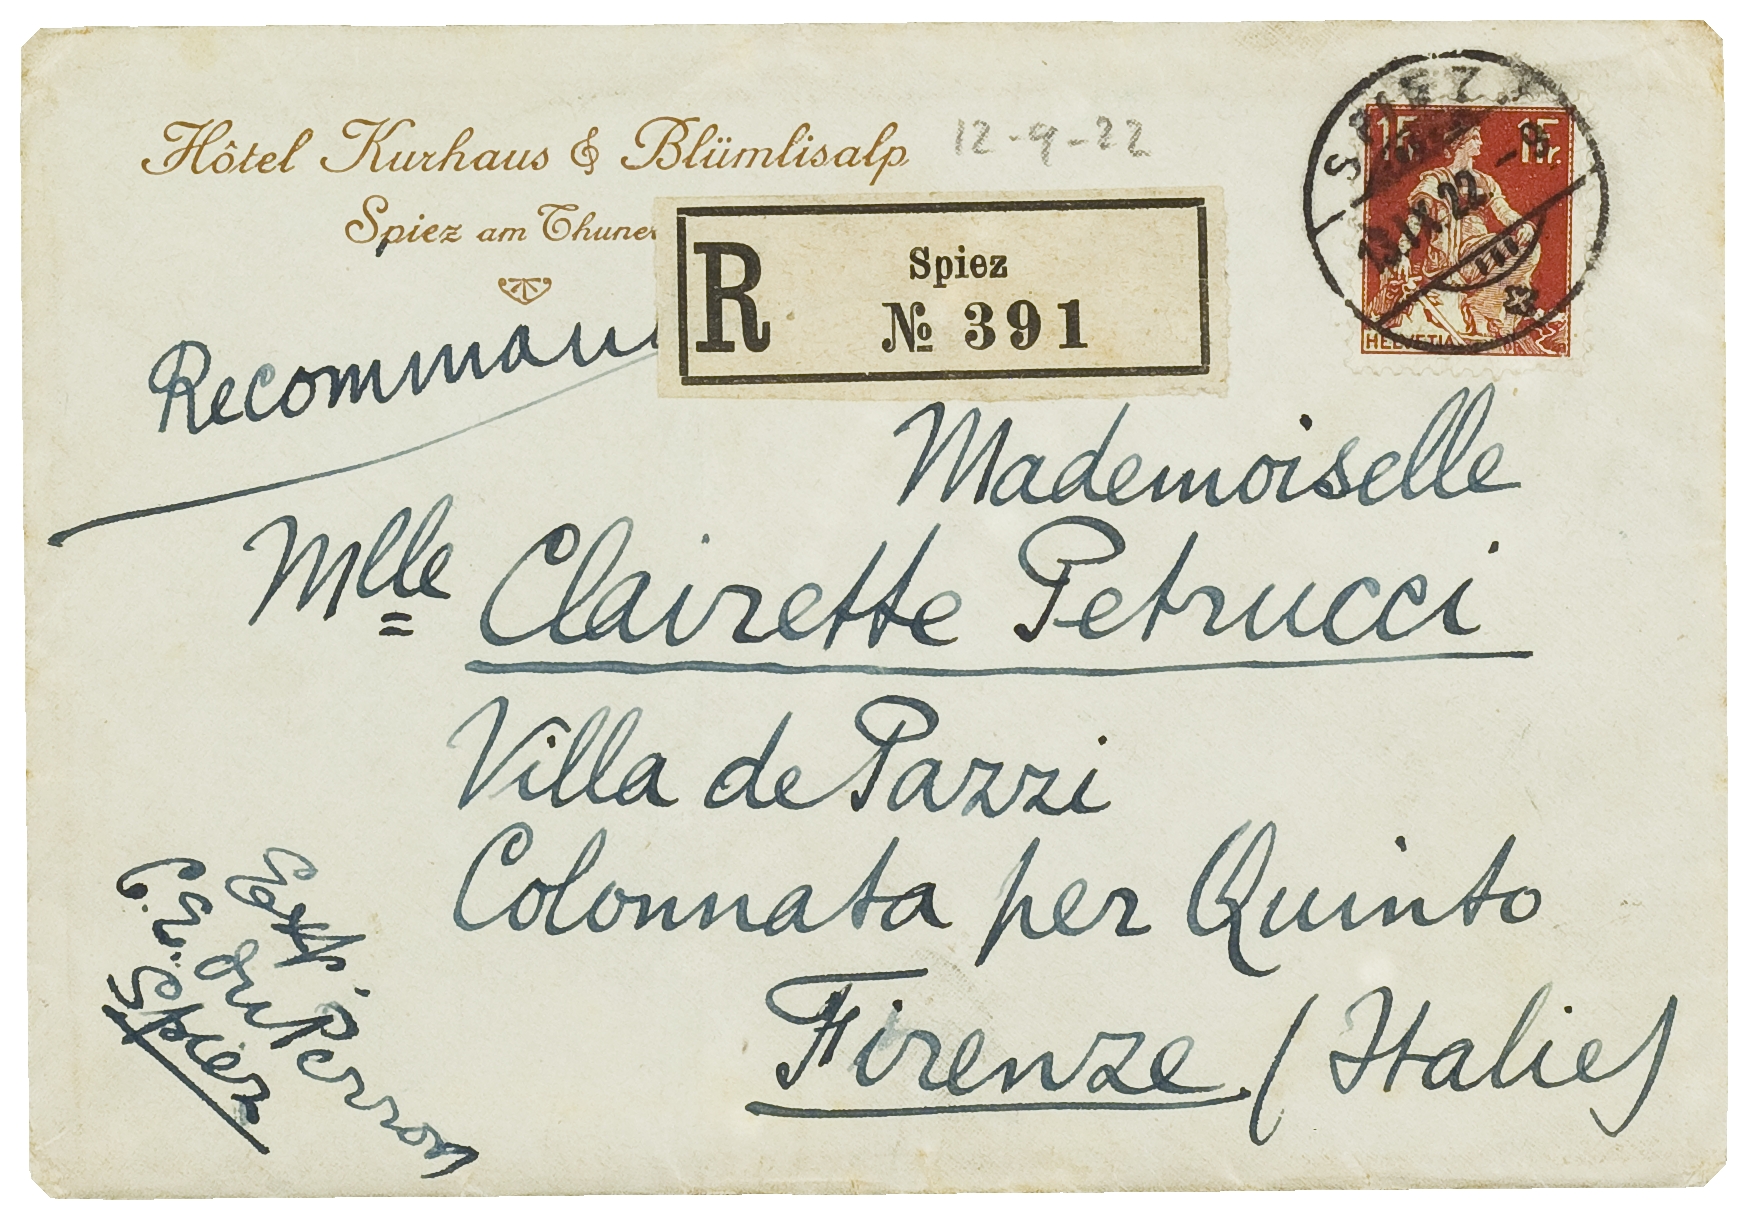 Hôtel Kurhaus & Blümlisalp
12-9-22
Spiez am Thuner
R
Spiez
№ 391
SPIEZ
13.IX.22.-9
HELVETIA
Recomman
Mademoiselle
Mlle Clairette Petrucci
Villa de Pazzi
Colonnata per Quinto
Firenze (Italie)
Exp.
C.E. du Perron
Spiez